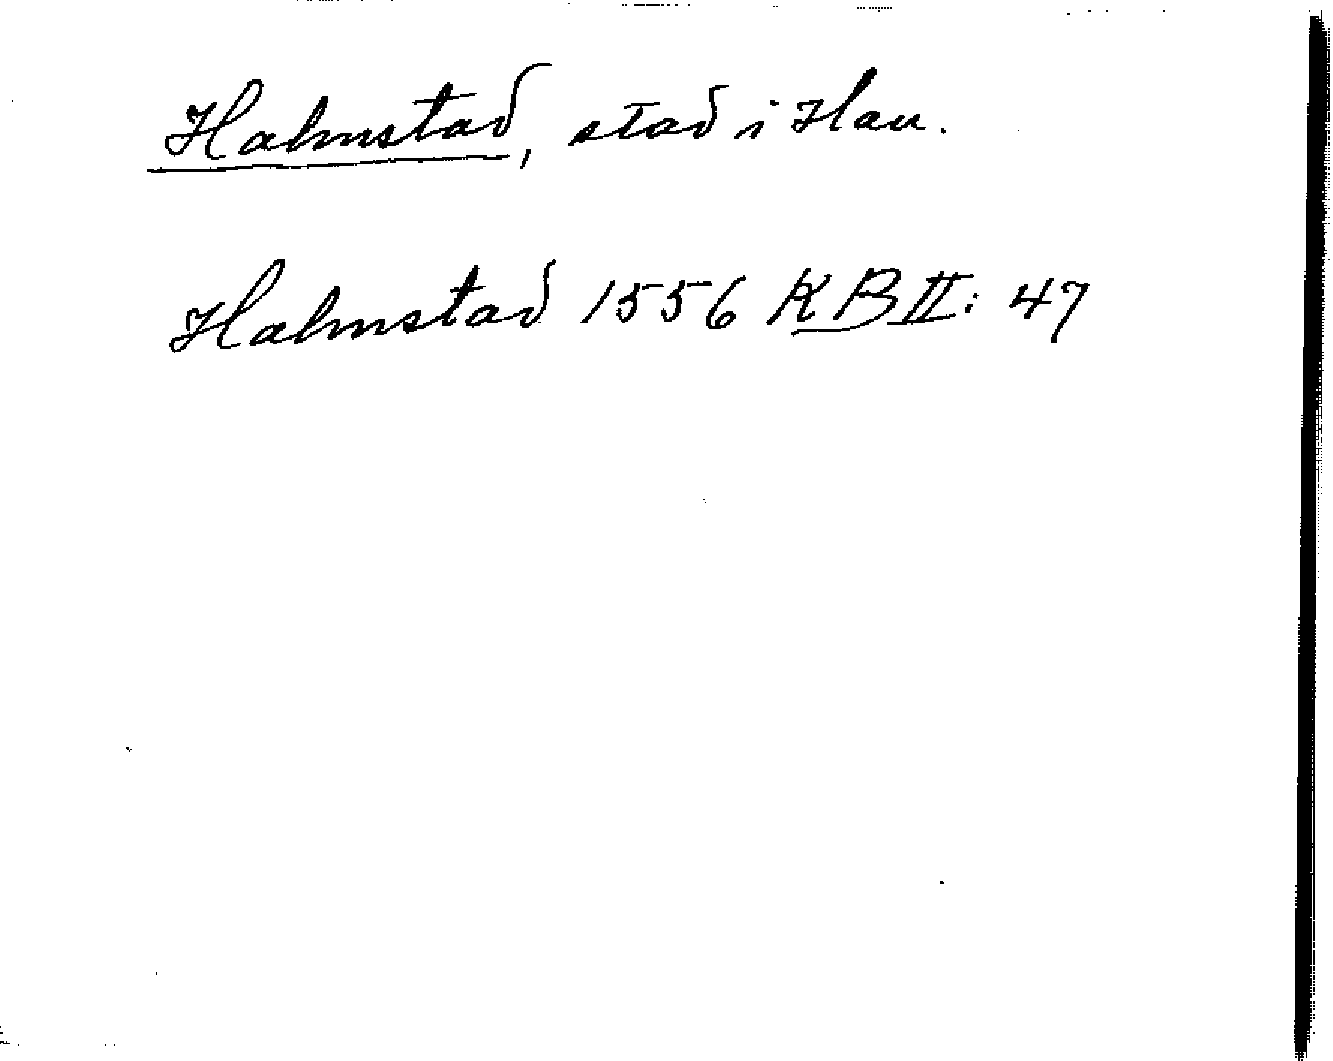 Halmstad, stad i Hau.
Halmstad 1556 KB II: 47